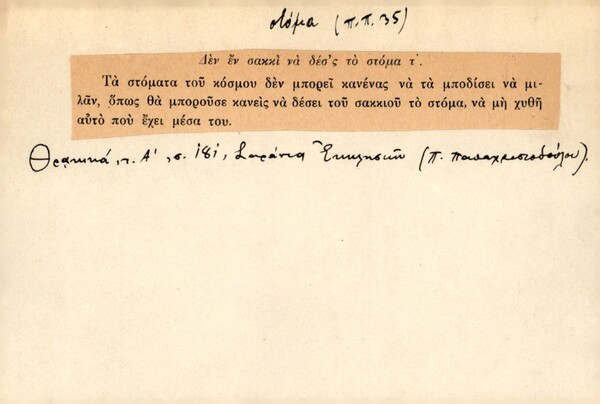 στόμα (π.π. 35)
Δὲν ἔν σακκὶ νὰ δέσ'ς τὸ στόμα τ'.
Τὰ στόματα τοῦ κόσμου δὲν μπορεῖ κανένας νὰ τὰ μποδίσει νὰ μι-
λᾶν, ὅπως θὰ μποροῦσε κανεὶς νὰ δέσει τοῦ σακκιοῦ τὸ στόμα, νὰ μὴ χυθῆ
αὐτὸ ποὺ ἔχει μέσα του.
Θρακικά, τ. Α', σ. 181, Σαράντα Ἐκκλησιῶν (Π. Παπαχριστοδούλου).